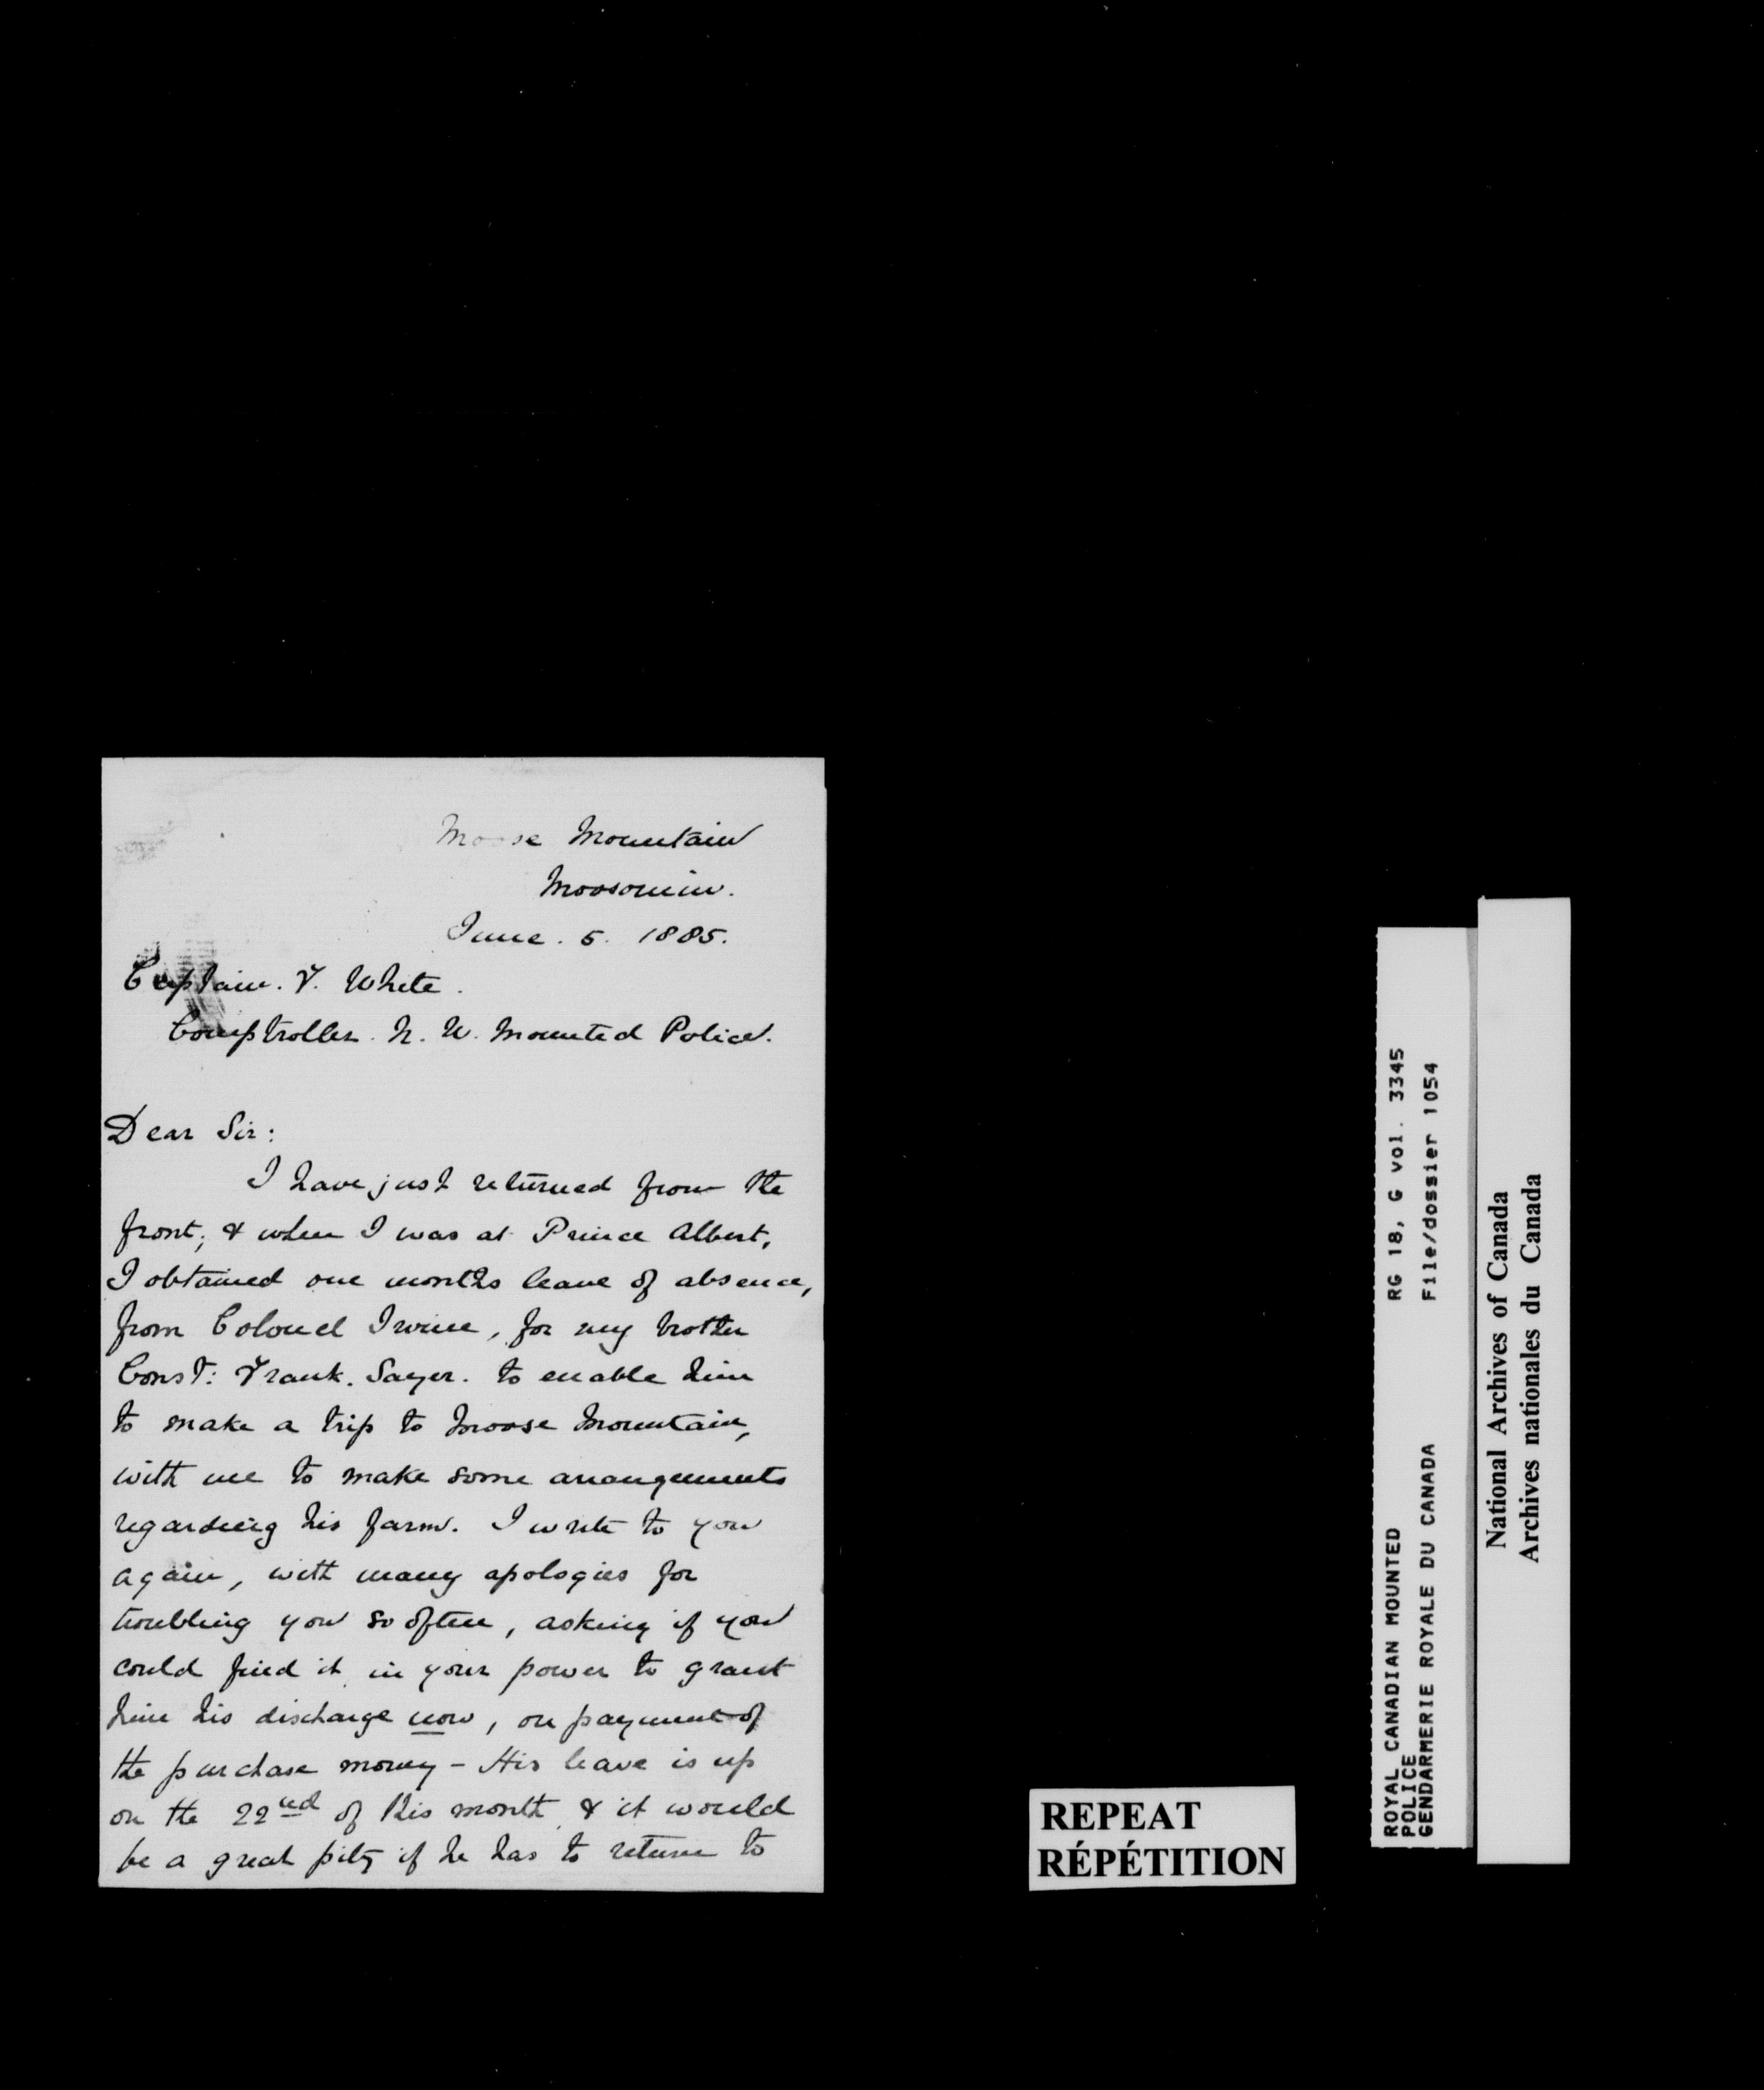 Moose Mountain
Moosomin.
June. 5. 1885.
Captain. F. White.
Comptroller. N. W. Mounted Police.
Dear Sir:
I have just returned from the
front; & when I was at Prince Albert,
I obtained one months leave of absence,
from Colonel Irvine, for my brother
Const: Frank. Sayer. to enable him
to make a trip to Moose Mountain,
with me to make some arrangements
regarding his farm. I write to you
again, with many apologies for
troubling you so often, asking if you
could find it in your power to grant
him his discharge now, on payment of
the purchase money - His leave is up
on the 22nd of this month, & it would
be a great pity if he has to return to
REPEAT
RÉPÉTITION
ROYAL CANADIAN MOUNTED
POLICE
GENDARMERIE ROYALE DU CANADA
RG 18, G vol. 3345
File/dossier 1054
National Archives of Canada
Archives nationales du Canada